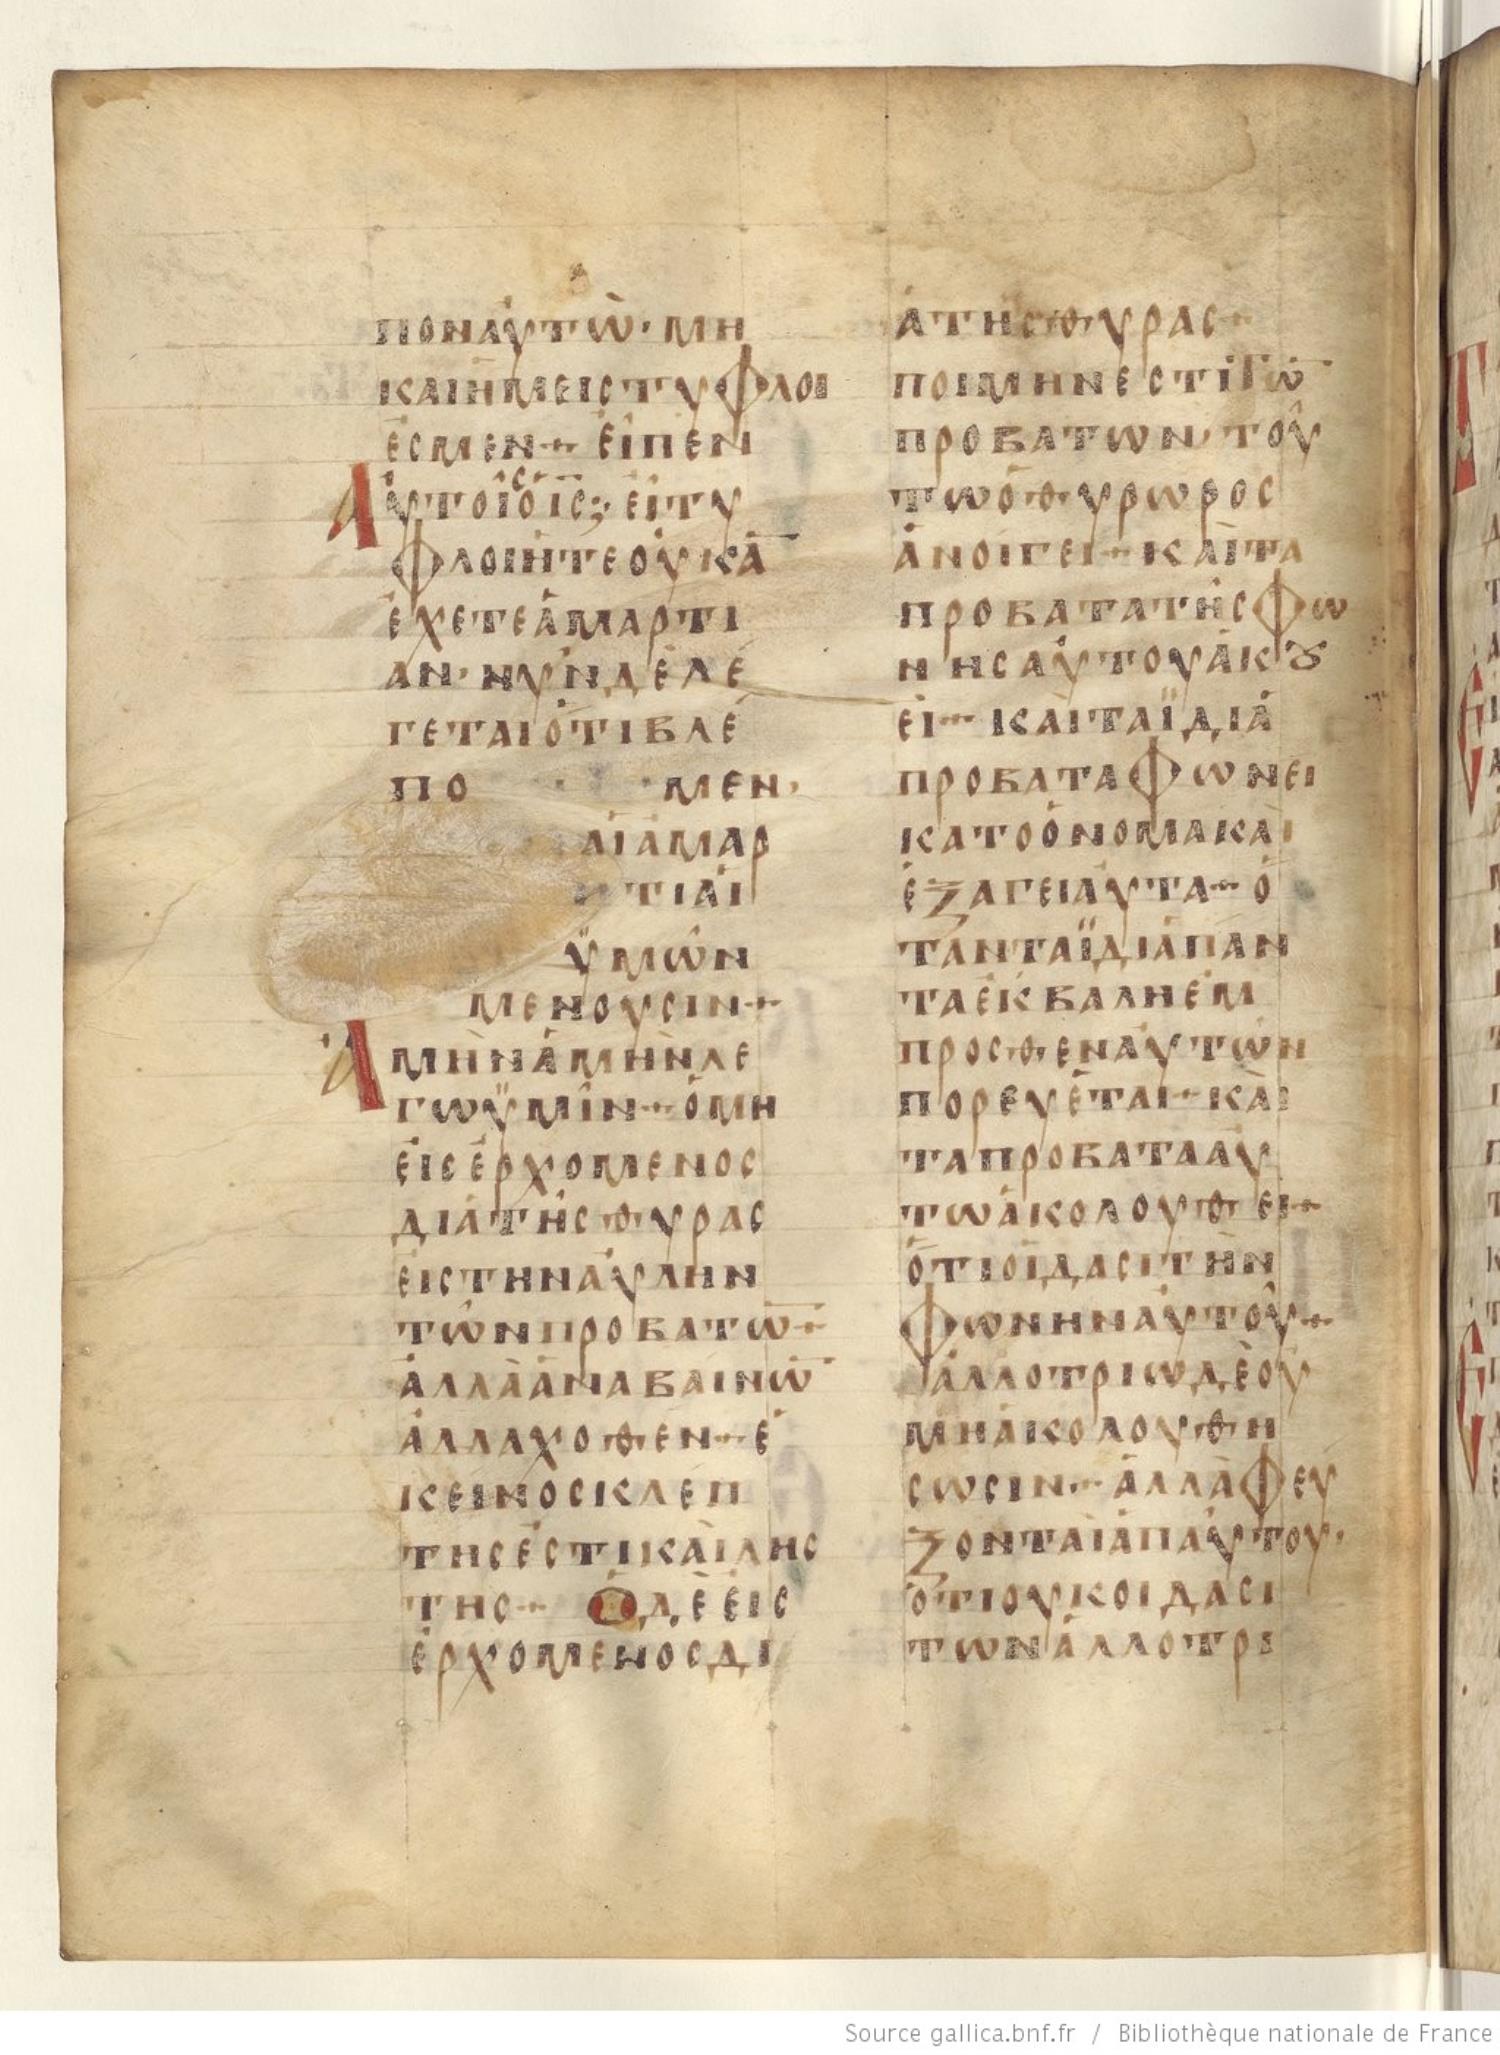 ΠΟΝΑΥΤΩ· ΜΗ
ΚΑΙΗΜΕΙΣΤΥΦΛΟΙ
ΕΣΜΕΝ+ ΕΙΠΕΝ
ΑΥΤΟΙΣΟΙΣ: ΕΙΤΥ
ΦΛΟΙΗΤΕΟΥΚΑ̅
ΕΧΕΤΕΑΜΑΡΤΙ
ΑΝ· ΝΥΝΔΕΛΕ
ΓΕΤΑΙΟΤΙΒΛΕ
ΠΟ ΜΕΝ·
ΑΙΑΜΑΡ
ΤΙΑΙ
ΫΜΩΝ
ΜΕΝΟΥΣΙΝ+
ΑΜΗΝΑΜΗΝΛΕ
ΓΩΫΜΙΝ+ΟΜΗ
ΕΙΣΕΡΧΟΜΕΝΟΣ
ΔΙΑΤΗΣΘΥΡΑΣ
ΕΙΣΤΗΝΑΥΛΗΝ
ΤΩΝΠΡΟΒΑΤΩ̅+
ΑΛΛΑΑΝΑΒΑΙΝΩ̅
ΑΛΛΑΧΟΘΕΝ+Ε
ΚΕΙΝΟΣΚΛΕΠ
ΤΗΣΕΣΤΙΚΑΙΛΗΣ
ΤΗΣ+ ΟΔΕΕΙΣ
ΕΡΧΟΜΕΝΟΣΔΙ
ΑΤΗΣΘΥΡΑΣ+
ΠΟΙΜΗΝΕΣΤΙΤΩ̅
ΠΡΟΒΑΤΩΝ· ΤΟΥ
ΤΩΟΘΥΡΩΡΟΣ
ΑΝΟΙΓΕΙ+ ΚΑΙΤΑ
ΠΡΟΒΑΤΑΤΗΣΦΩ
ΝΗΣΑΥΤΟΥΑΚȢ
ΕΙ+ ΚΑΙΤΑΪΔΙΑ
ΠΡΟΒΑΤΑΦΩΝΕΙ
ΚΑΤΟΟΝΟΜΑΚΑΙ
ΕΞΑΓΕΙΑΥΤΑ+Ο
ΤΑΝΤΑΪΔΙΑΠΑΝ
ΤΑΕΚΒΑΛΗΕΜ
ΠΡΟΣΘΕΝΑΥΤΩΝ
ΠΟΡΕΥΕΤΑΙ+ΚΑΙ
ΤΑΠΡΟΒΑΤΑΑΥ
ΤΩΑΚΟΛΟΥΘΕΙ+
ΟΤΙΟΙΔΑΣΙΤΗΝ
ΦΩΝΗΝΑΥΤΟΥ+
ΑΛΛΟΤΡΙΩΔΕΟΥ
ΜΗΑΚΟΛΟΥΘΗ
ΣΩΣΙΝ+ ΑΛΛΑΦΕΥ
ΞΟΝΤΑΙΑΠΑΥΤΟΥ·
ΟΤΙΟΥΚΟΙΔΑΣΙ
ΤΩΝΑΛΛΟΤΡΙ
Source gallica.bnf.fr / Bibliothèque nationale de France